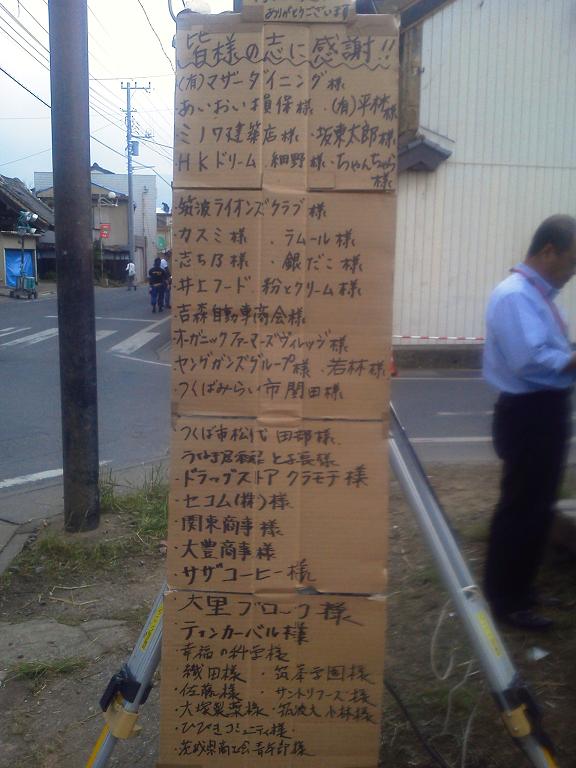 ありがとうございます
皆様の志に感謝!!
(有)マザーダイニング様
・あいおい損保様 ・(有)平林様
・ミノワ建築店様 ・坂東太郎様
・HKドリーム 細野様・ちゃんちゃら様
・筑波ライオンズクラブ様
・カスミ様 ・ラムール様
・志ち乃様 ・銀だこ様
・井上フード ・粉とクリーム様
・吉森自動車商会様
・オーガニックファーマーズヴィレッジ様
・ヤングガンズグループ様 ・若林様
・つくばみらい市 関田様
・つくば市松代 田部様
・ドラッグストア クラモチ様
・セコム(株)様
・関東商事様
・大豊商事様
・サザコーヒー様
・大里ブロック様
・ティンカーベル様
・幸福の科学様
・織田様 ・筑峯学園様
・佐藤様 ・サントリーフーズ様
・大塚製薬様 ・筑波大 小林様
・ひびきコミュニティ様
・茨城県商工会青年部様